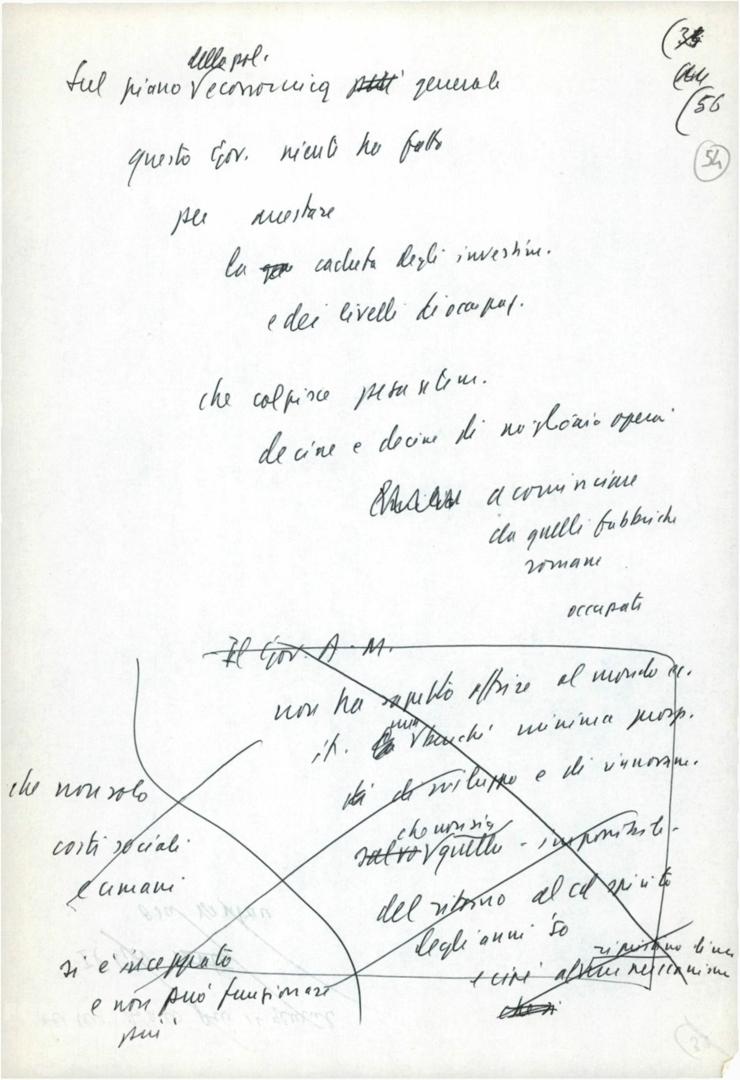 (56
54
della pol.
Sul piano economica generale
questo Gov. niente ha fatto
per arrestare
la caduta degli investim.
e dei livelli di occupaz.
che colpisce pesantem.
decine e decine di migliaia operai
a cominciare
da quelle fabbriche
romane
occupate
Il Gov. A. M.
non ha saputo offrire al mondo ec.
it. benché minima prosp.
di sviluppo e di rinnovam.
che non sia
salvo quella - impossibile -
del ritorno al cd spirito
degli anni '50
e cioè al meccanismo
che non solo
costi sociali
e umani
si è inceppato
e non può funzionare
più